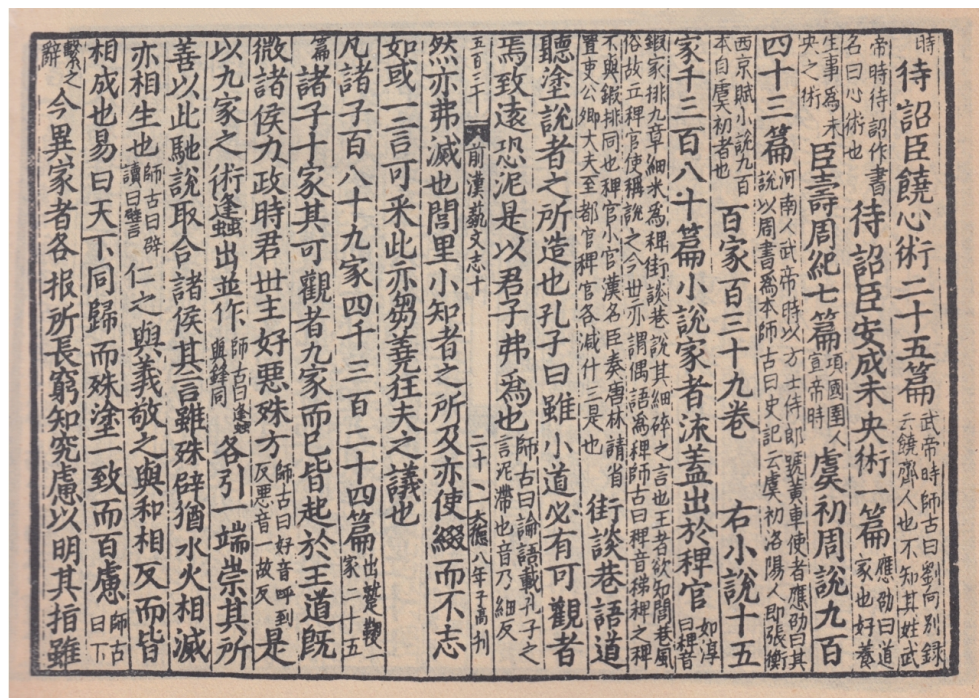 時待詔臣饒心術二十五篇武帝時師古曰劉向別録云饒齊人也不知其姓武
帝時待詔作書名曰心術也待詔臣安成未央術一篇應劭曰道家也好養
生事爲未央之術臣壽周紀七篇項國圉人宣帝時虞初周說九百
四十三篇河南人武帝時以方士侍郎號黃車使者應劭曰其說以周書爲本師古曰史記云虞初洛陽人即張衡
西京賦小說九百本自虞初者也百家百三十九卷右小說十五
家千三百八十篇小說家者流蓋出於稗官如淳曰稗音
鍜家排九章細米爲稗街談巷說其細碎之言也王者欲知閭巷風俗故立稗官使稱說之今世亦謂偶語爲稗師古曰稗音稊稗之稗
不與鍜排同也稗官小官漢名臣奏唐林請省置吏公卿大夫至都官稗官各減什三是也街談巷語道
聽塗說者之所造也孔子曰雖小道必有可觀者
焉致遠恐泥是以君子弗爲也師古曰論語載孔子之言泥滯也音乃細反
五百三十 前漢藝文志十 二十二 大德八年子高刊
然亦弗滅也閭里小知者之所及亦使綴而不忘
如或一言可采此亦芻蕘狂夫之議也
凡諸子百八十九家四千三百二十四篇出蹵鞠一家二十五
篇諸子十家其可觀者九家而已皆起於王道既
微諸侯力政時君世主好惡殊方師古曰好音呼到反惡音一故反是
以九家之術蠭出並作師古曰蠭與鋒同各引一端崇其所
善以此馳說取合諸侯其言雖殊辟猶水火相滅
亦相生也師古曰辟讀曰譬仁之與義敬之與和相反而皆
相成也易曰天下同歸而殊塗一致而百慮師古曰下
繫之辭今異家者各推所長窮知究慮以明其指雖